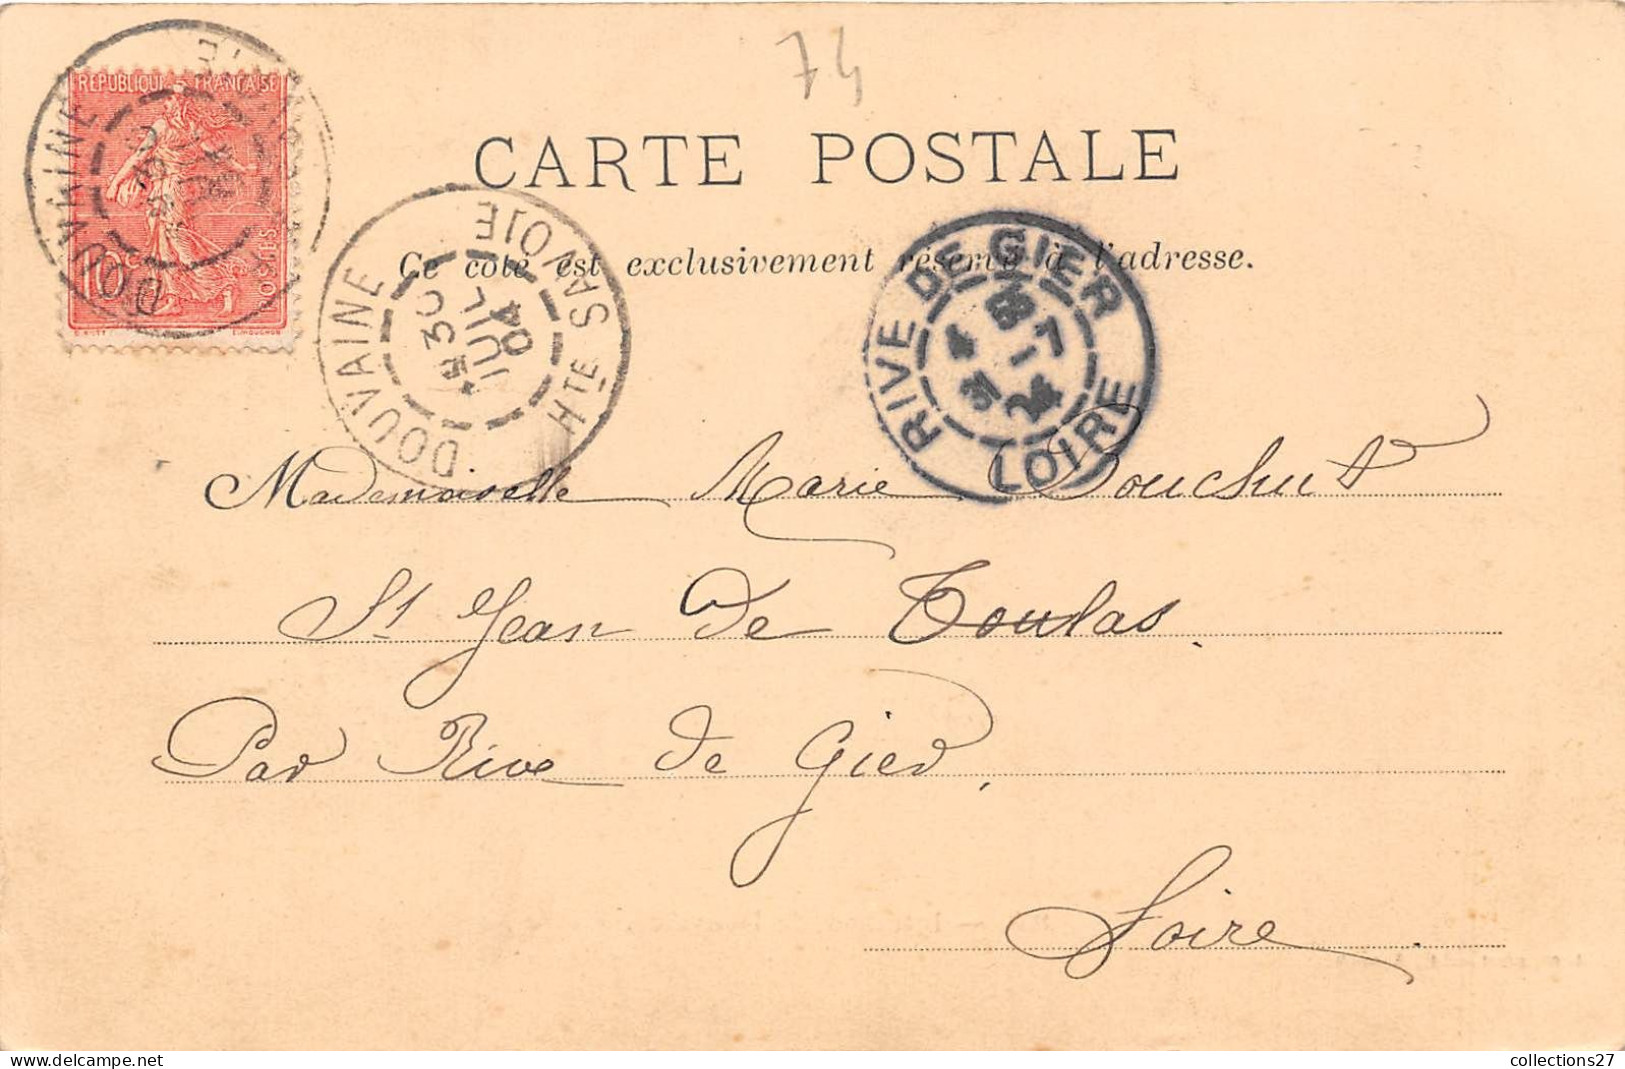 74
RÉPUBLIQUE FRANÇAISE
10c
POSTES
DOUVAINE
CARTE POSTALE
Ce côté est exclusivement réservé à l'adresse.
DOUVAINE HTE SAVOIE
30 JUIL 04
RIVE DE GIER LOIRE
Mademoiselle Marie Bouchut
St Jean de Toulas.
Par Rive de Gier,
Loire
collections27